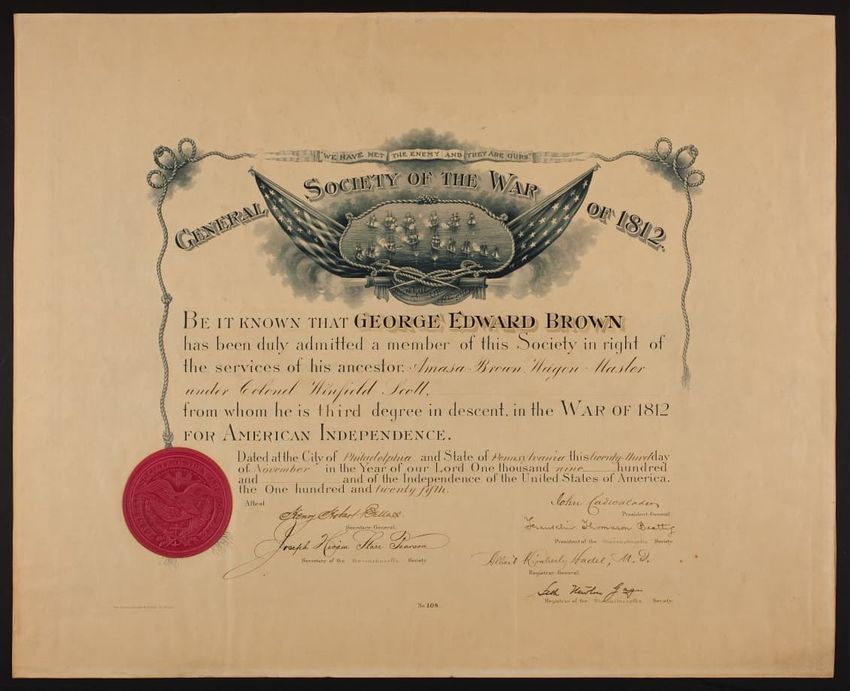 "WE HAVE MET THE ENEMY AND THEY ARE OURS"
GENERAL SOCIETY OF THE WAR OF 1812.
BE IT KNOWN THAT GEORGE EDWARD BROWN
has been duly admitted a member of this Society in right of
the services of his ancestor, Amasa Brown Wagon Master
under Colonel Winfield Scott,
from whom he is third degree in descent, in the WAR OF 1812
FOR AMERICAN INDEPENDENCE.
Dated at the City of Philadelphia and State of Pennsylvania this twenty third day
of November in the Year of our Lord One thousand nine hundred
and and of the Independence of the United States of America,
the One hundred and twenty fifth.
Attest
John Cadwalader
President-General.
Henry Hobart Bellas
Secretary-General.
Franklin Thomason Beatty
President of the Massachusetts Society.
Joseph Hiram Starr Pearson
Secretary of the Massachusetts Society.
Albert Kimberly Hadel, M.D.
Registrar-General.
Seth Newton Gage
Registrar of the Massachusetts Society.
No 108.